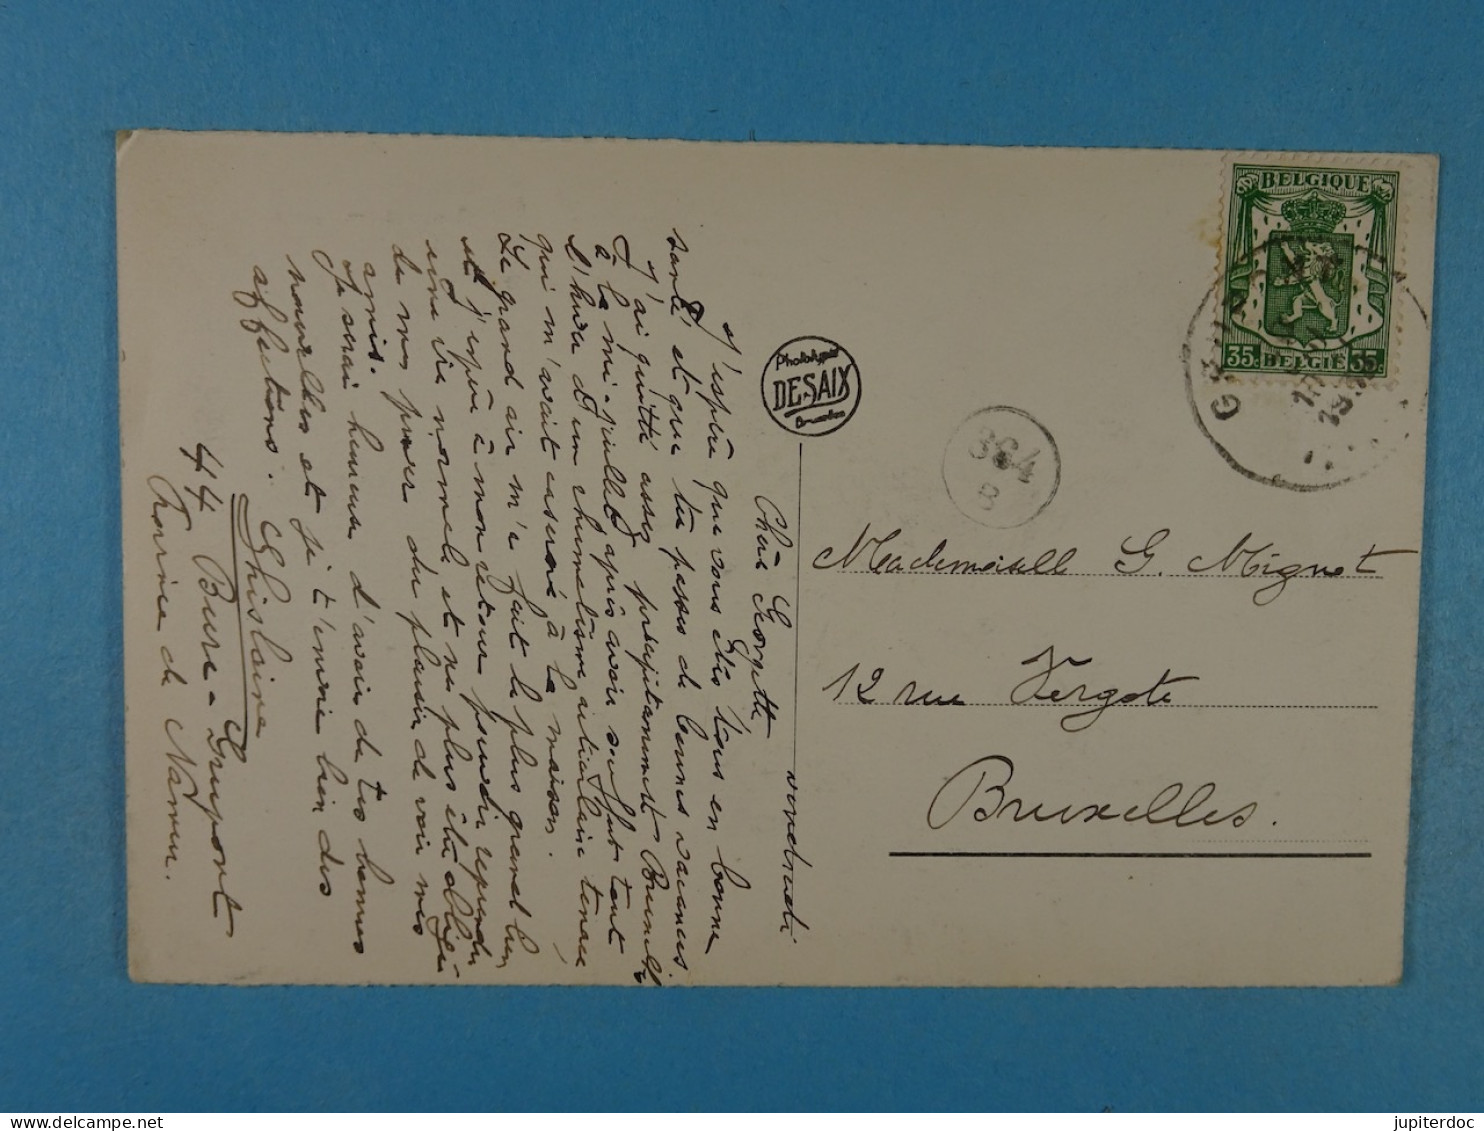 vendredi
Chère Georgette
J'espère que vous êtes tous en bonne
santé et que tu passes de bonnes vacances.
J'ai quitté assez précipitamment Bruxelles
à la mi-juillet après avoir souffert tant
l'hiver d'un rhumatisme articulaire tenace
qui m'avait terrassé à la maison.
Le grand air m'a fait le plus grand bien
et j'espère à mon retour pouvoir reprendre
une vie normale et ne plus être obligée
de me priver du plaisir de voir mes
amis.
Je serai heureuse d'avoir de tes bonnes
nouvelles et je t'envoie bien des
affections. Ghislaine
44 Bure-Grupont
Province de Namur.
Phototypie
DESAIX
Bruxelles
364
B
BELGIQUE
35c BELGIË 35c
GRUPONT
Mademoiselle G. Mignot
12 rue Vergote
Bruxelles.
jupiterdoc